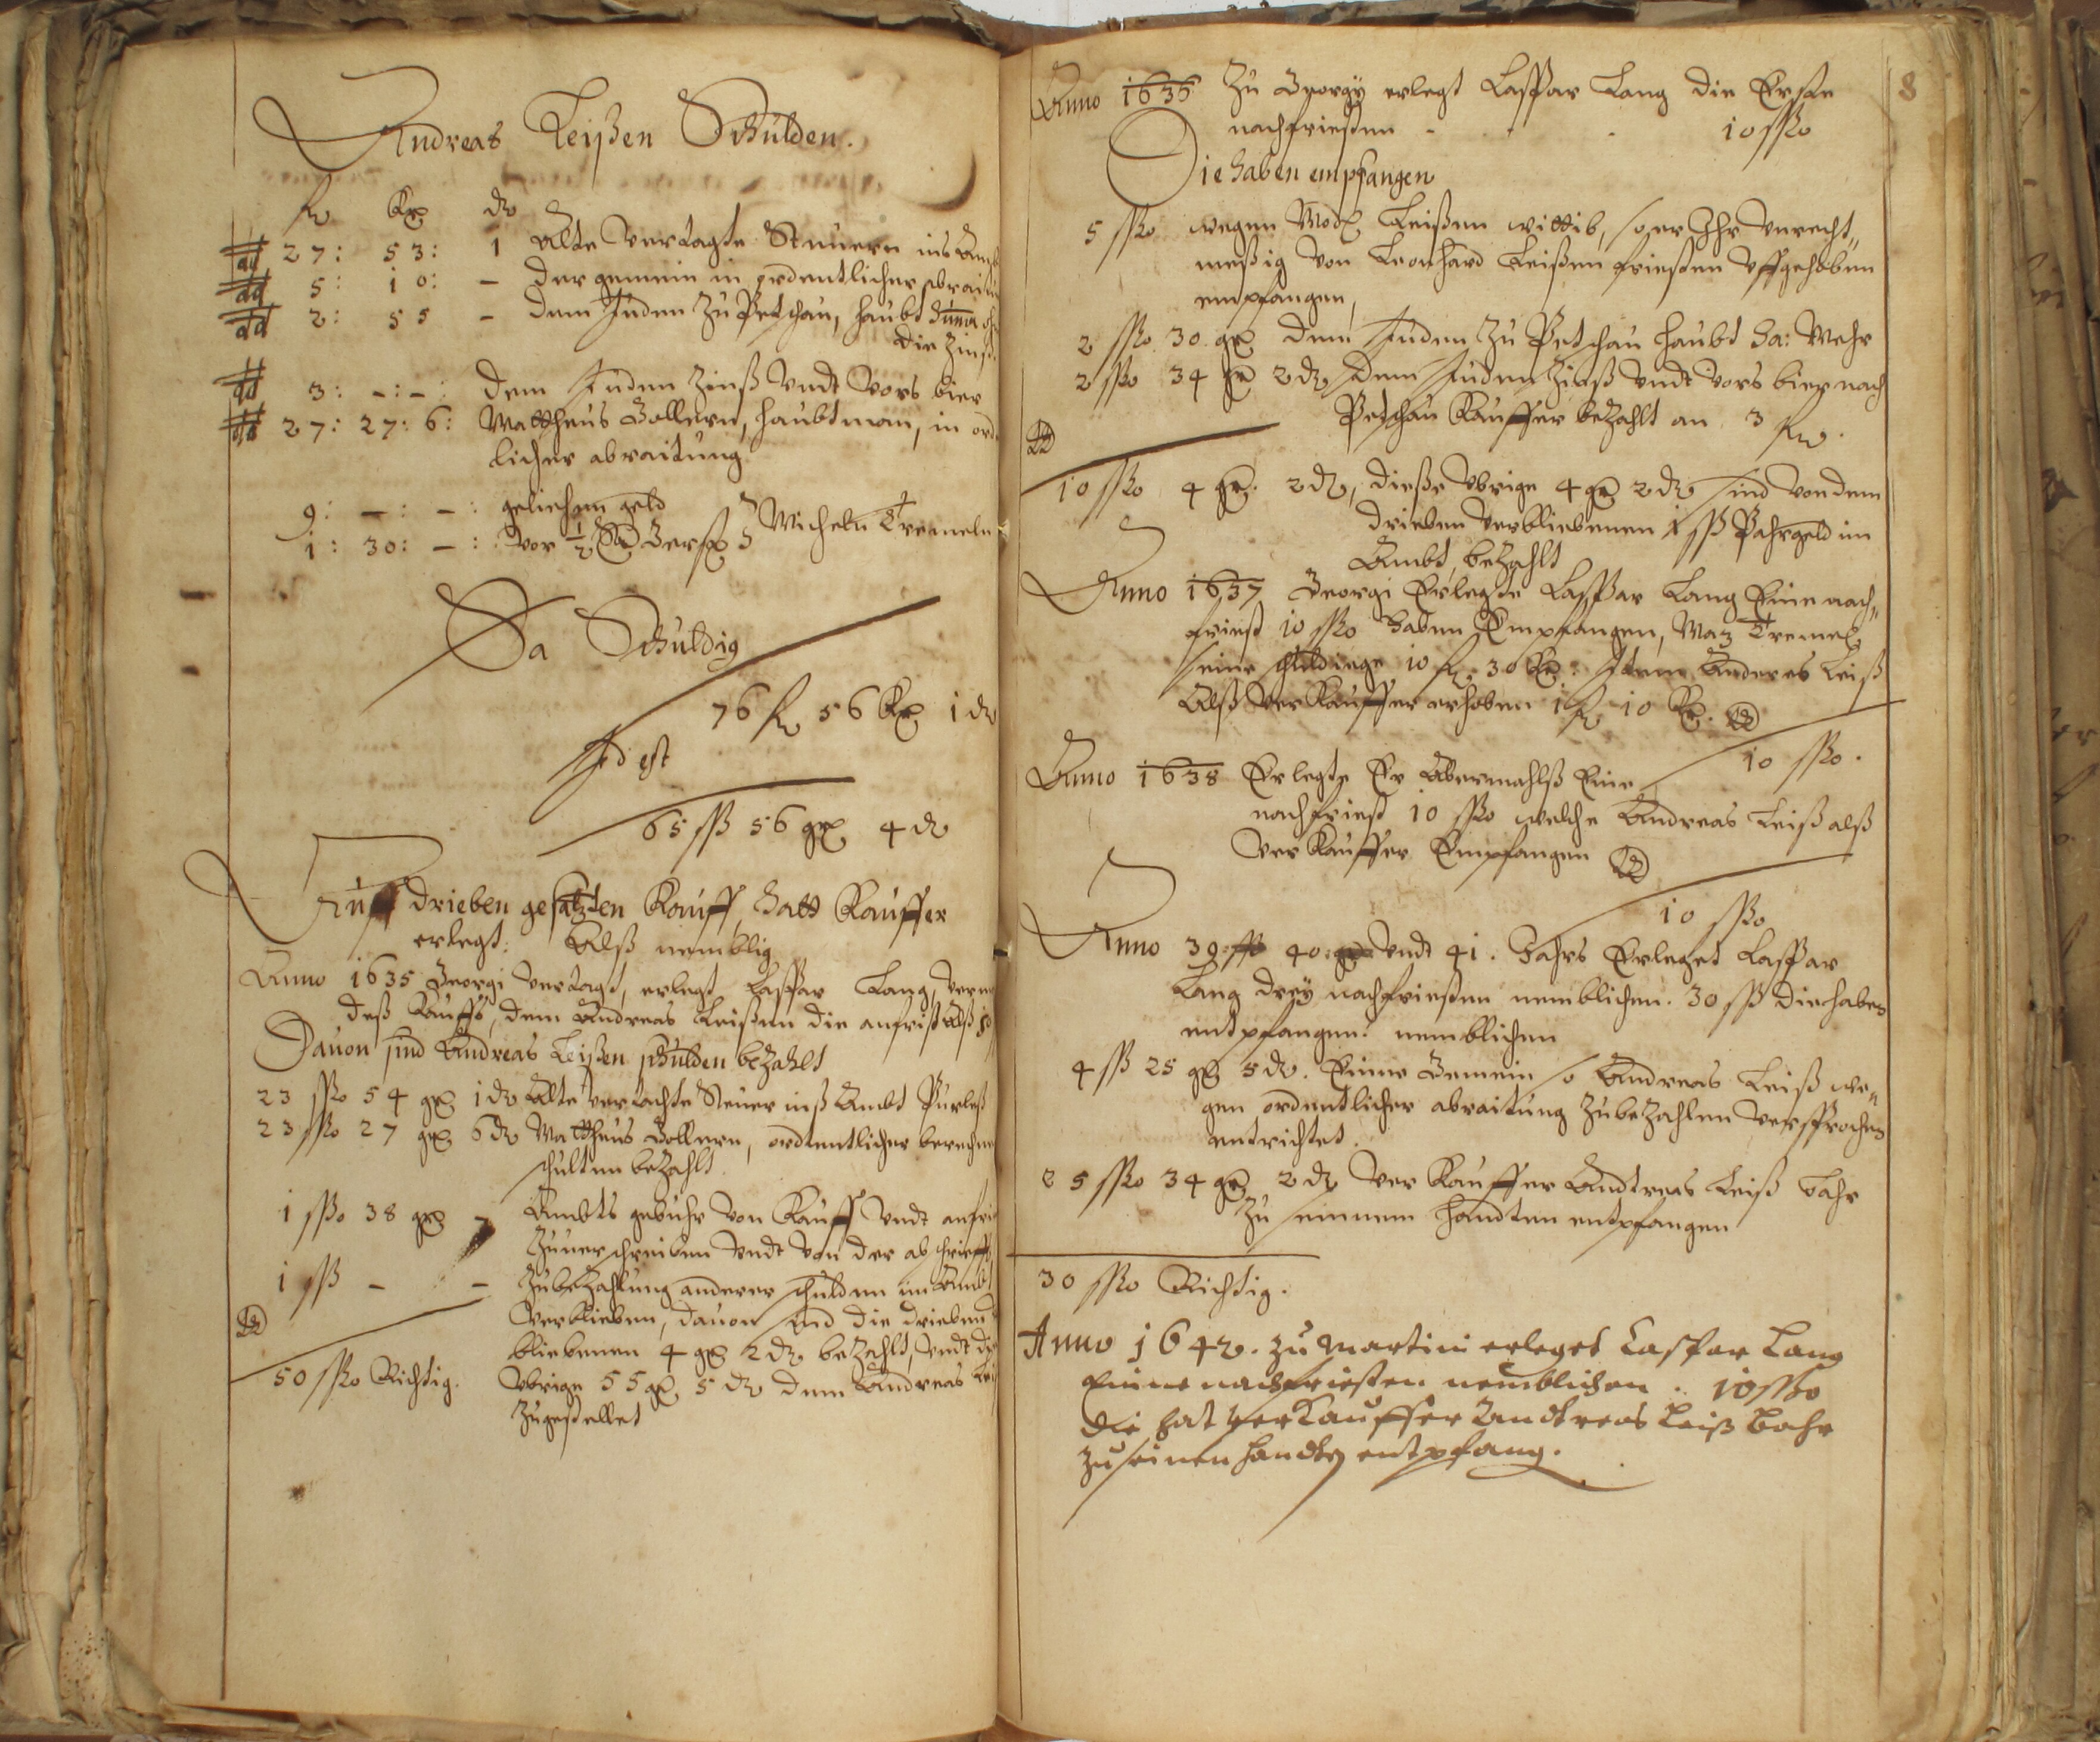 Andreas Leißen Schulden.
fl kr d
dd 27: 53: 1 Alte vertagte Steuern ins Ambt
dd 5: 10: – der gemein in ordentlicher abraitu
dd 2: 55 – dem Juden Zu Petschau, haubt Summa ohn
die Zinß.
dd 3: –:–: dem Juden Zinß vndt vors bier
dd 27: 27: 6: Mattheus Bollern, haubtman, in ord
licher abraitung
9: –: –: geliehen geld
1: 30: –: vor ½ Gerst Micheln Tremeln
Sa Schuldig
76 fl 56 kr 1 d
Id est
65 ßß 56 gr 4 d
Auff drieben gesatzten Kauff, hatt Kauffer
erlegt: Alß nemblig
Anno 1635 Georgi vertagt, erlegt Casspar Lang, verm
deß Kauffs, dem Andreas Leißen die anfrist Alß 50
Dauon sind Andreas Leißen schulden bezahlt
23 ßßo 54 gr 1 d Alte vertachte Steuer inß Ambt Purleß
23 ßßo 27 gr 6 d Mattheus Bollern, ordtentlicher berechne
schulten bezahlt.
1 ßßo 38 gr – Ambts gebuhr von Kauff vndt anfri
Zuuerschreiben vndt von der abschriefft
1 ßß – – Zubezahlung anderer schulden im Ambt
verblieben, dauon sind die drieben
bliebenen 4 gr 2 d bezahlt, vndt die
50 ßßo Richtig. vbrige 55 gr 5 d dem Andreas Lei
Zugestellet
8
Anno 1636 Zu Georgy erlegt Casspar Lang die Erste
nachfrießten - - - 10 ßßo
Die haben empfangen
5 ßßo wegen Leißen wittib, so er Ihr vnrecht„
meßig von Leonhard Leißen frießten vffgehoben
empfangen,
2 ßßo 30 gr dem Juden Zu Petschau haubt Sa: Mehr
2 ßßo 34 gr 2 d dem Juden Zinß vndt vors bier nach
Petschau Kauffer bezahlt an 3 fl.
10 ßßo 4 gr. 2 d, dieße vbrige 4 gr 2 d sind von dem
drieben verbliebenen 1 ßß Pahrgeld im
Ambt, bezahlt
Anno 1637 Georgi Erlegte Casspar Lang Eine nach„
friest 10 ßßo haben Empfangen, Matz Tremel
seine schuldiege 10 fl 30 kr: Item Anderes Leiß
Alß Verkauffer erhoben 1 fl 10 kr.
10 ßßo.
Anno 1638 Erlegte Er Abermahlß Eine
nachfriest 10 ßßo welche Andreas Leiß alß
Verkauffer Empfangen
10 ßßo
Anno 39: 40: vndt 41. Jahrs Erleget Casspar
Lang drey nachfrießten nemblichen. 30 ßß die haben
entpfangen: nemblichen
4 ßß 25 gr 5 d. Einne Gemein so Andreas Leiß we„
gen ordentlicher abraitung Zubezahlen versprochen
entrichtet.
25 ßßo 34 gr 2 d Verkauffer Andtreas Leiß Bahr
Zu seinnen handten entpfangen
30 ßßo Richtig.
Anno 1642. zu Martini erleget Caspar Lang
Einne nachfrießten nemblichen .. 10 ßßo
die hat Verkauffer Andtreas Leiß Bahr
zu seinen handten entpfang.